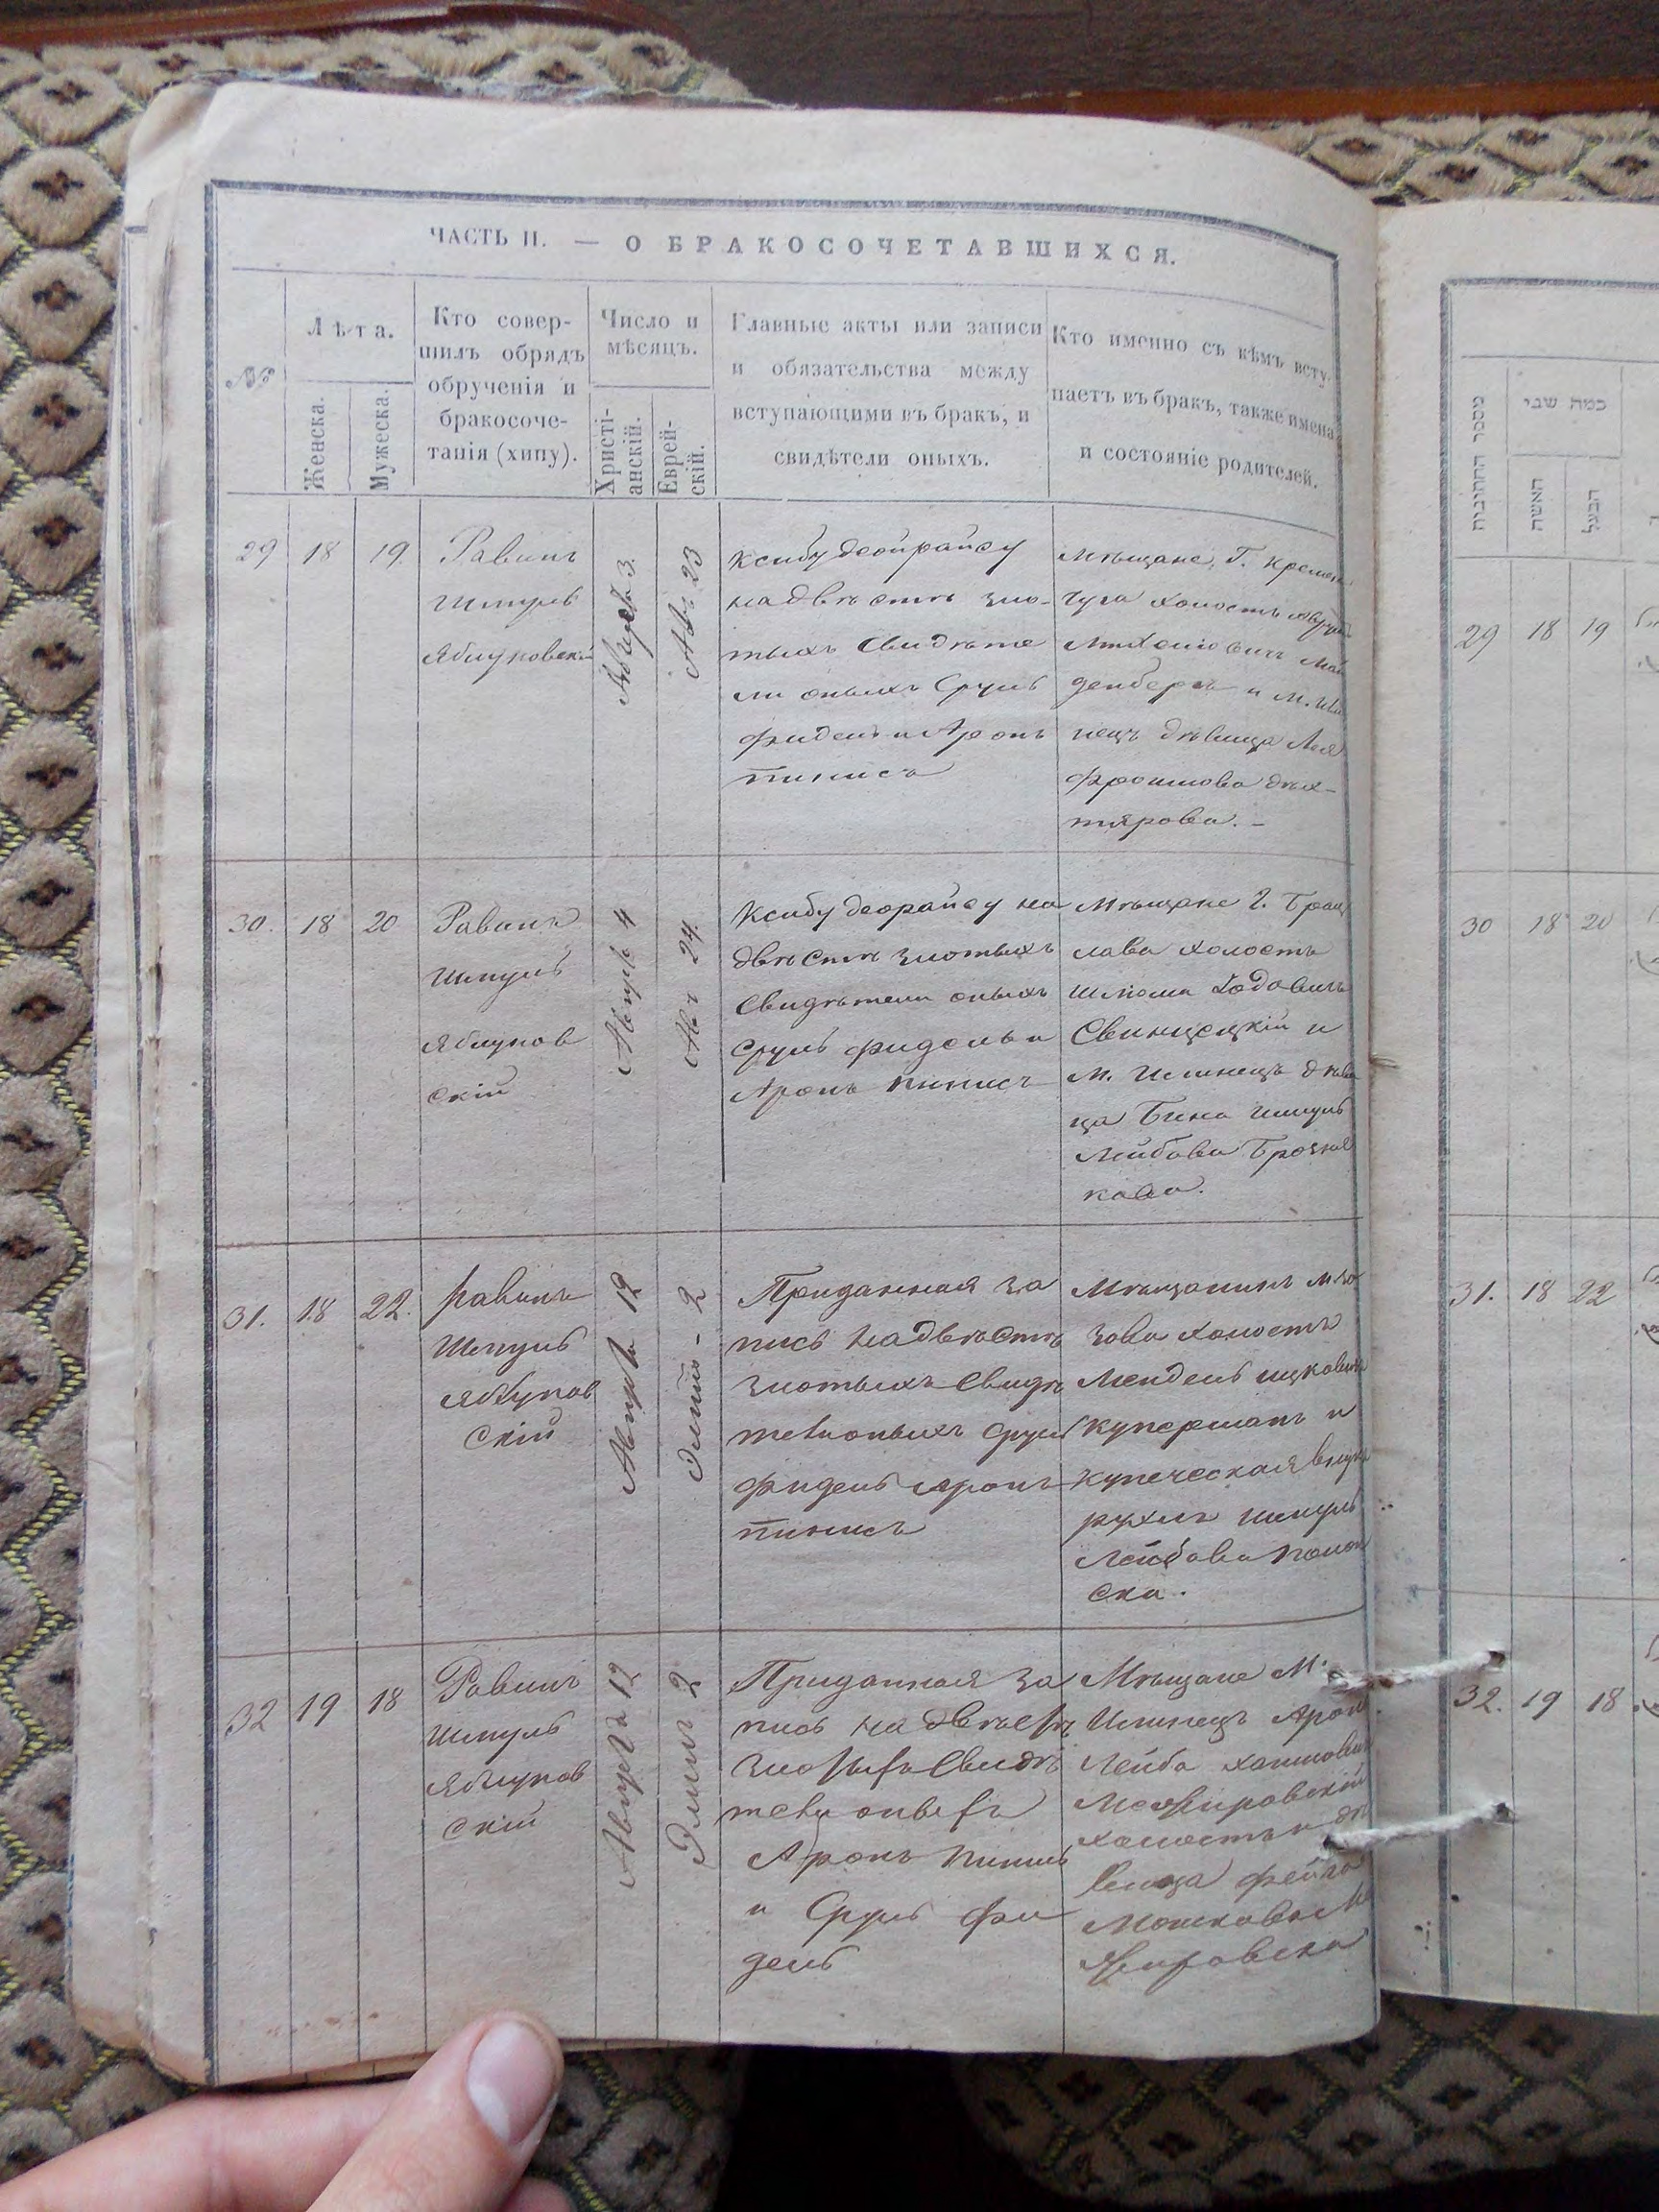 ЧАСТЬ II. — О БРАКОСОЧЕТАВШИХСЯ.
№
Лѣта.
Женска.
Мужеска.
Кто совер-
шилъ обрядъ
обрученія и
бракосоче-
танія (хипу).
Число и
мѣсяцъ.
Христі-
анскій.
Еврей-
скій.
Главные акты или записи
и обязательства между
вступающими въ бракъ, и
свидѣтели оныхъ.
Кто именно съ кѣмъ всту-
паетъ въ бракъ, также имена
и состояніе родителей.
29
18
19.
Равинъ
Шмуль
Яблуновскій
Августа 3.
Авъ 23
Ксибу деойрайсу
на двѣстѣ зло-
тыхъ Свидѣте
ли оныхъ Сруль
Фидель и Аронъ
Пинисъ
Мѣщане, Г. Кремен
чуга холостъ
денбергъ и М. Или
нецъ дѣвица Лея
Фроимова Дих-
тярова. –
30.
18
20
Равинъ
Шмуль
Яблунов
скій
Августа 4
Авъ 24.
Ксибу деорайсу на
двѣстѣ злотыхъ
Свидѣтели оныхъ
Сруль Фидель и
Аронъ Пинисъ
Мѣщане Г. Брац
лава холостъ
Шлюма
Свинцецкій и
М. Илинецъ дѣви
ца Бина Шмуль
Лейбова
кова.
31.
18
22.
Равинъ
Шмуль
Яблунов
скій
Августа 12
Элулъ – 2
Приданная за
пись на двѣстѣ
злотыхъ Свидѣ
тели оныхъ Сруль
Фидель Аронъ
Пинисъ
Мѣщанинъ
холостъ
Мендель Ицковичъ
Куперманъ и
Купеческая внука
Рухля Шмуль
Лейбова Полон
ска.
32
19
18
Равинъ
Шмуль
Яблунов
скій
Августа 12
Элулъ 2
Приданная за
пись на двѣстѣ
злотыхъ Свидѣ
тели оныхъ
Аронъ Пинисъ
и Сруль Фи
дель
Мѣщане М.
Илинецъ Аронъ
Лейба Хаимовичъ
холостъ и дѣ
вица Фейга
Мошкова
מספר החתונות
כמה שני
האשה
הבעל
29
18
19
30
18
20
31.
18
22
32.
19
18